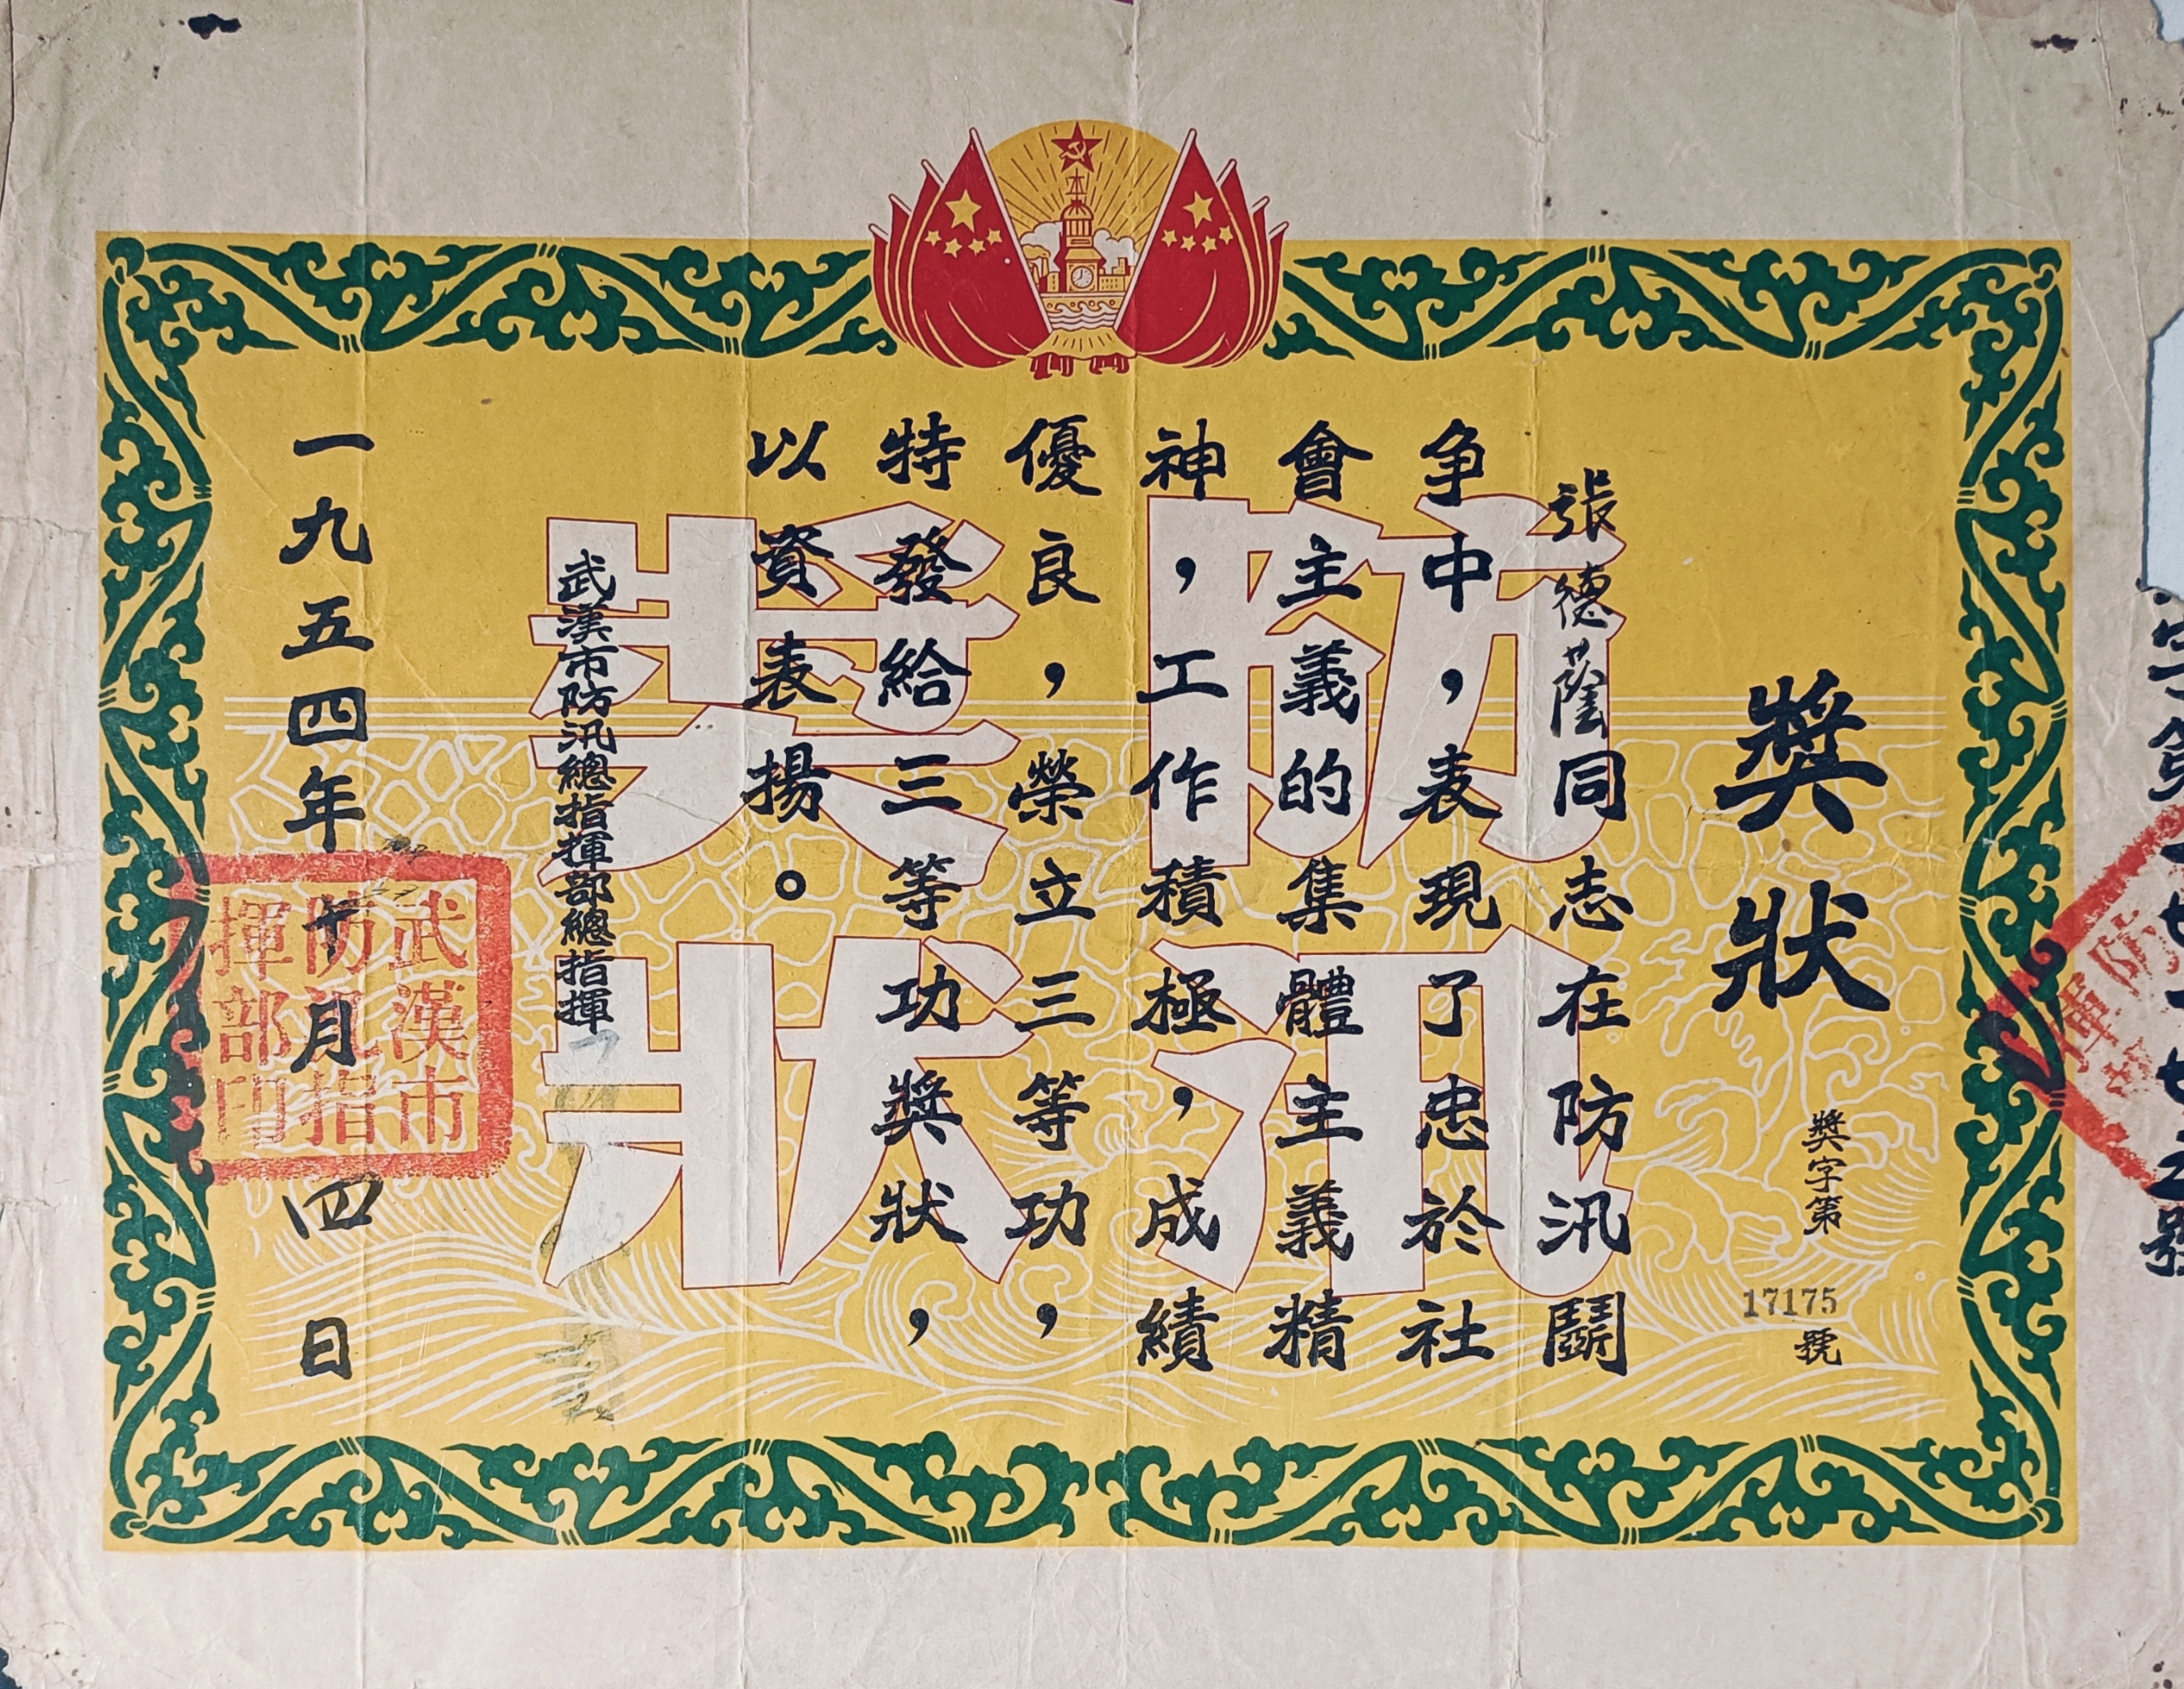 獎狀
獎字第
17175
號
張德蔭同志在防汛鬪
争中，表現了忠於社
會主義的集體主義精
神，工作積極，成績
優良，榮立三等功，
特發給三等功獎狀，
以資表揚。
武漢市防汛總指揮部總指揮
一九五四年十月四日
防汛
獎狀
武漢市
防汛指
揮部印